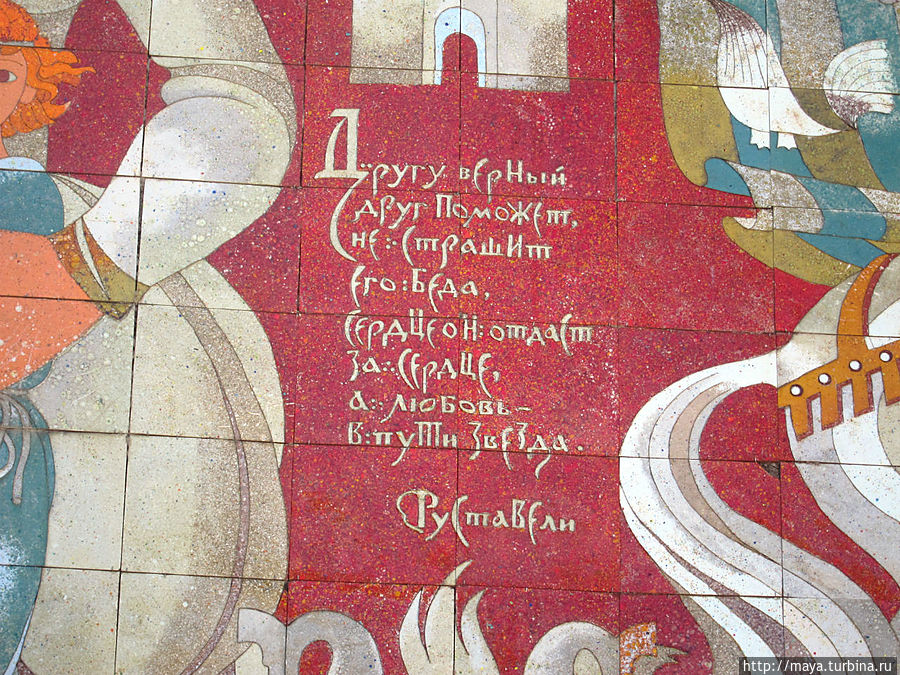 Другу верный
друг поможет,
не страшит
его беда,
сердце он отдаст
за сердце,
а любовь –
в пути звезда.
Руставели
http://maya.turbina.ru